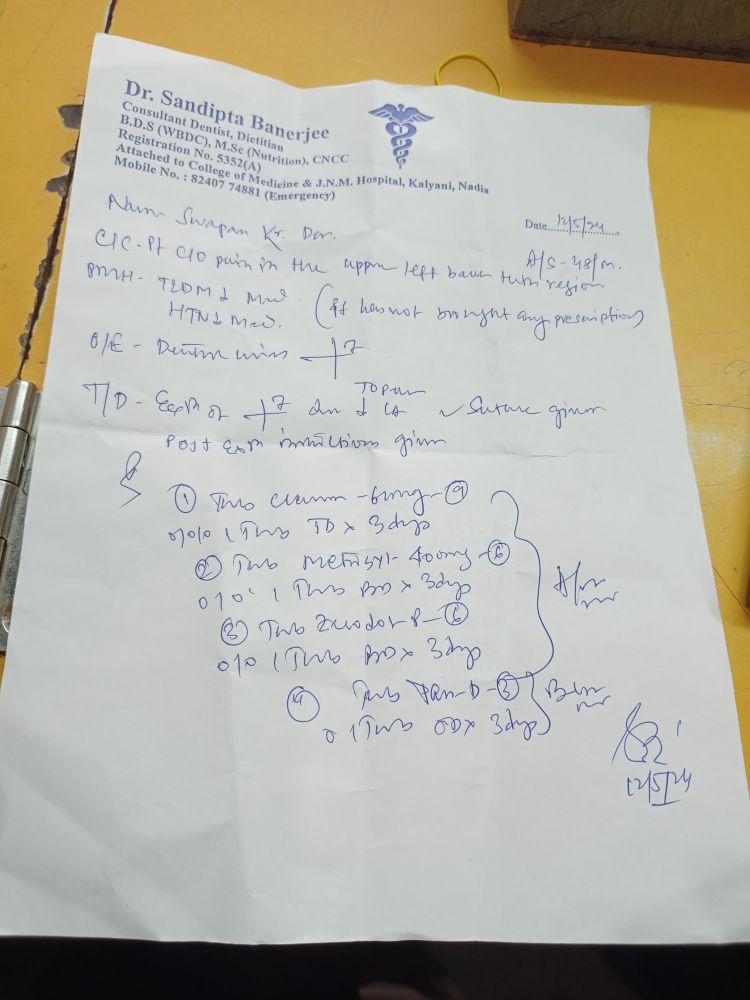 Dr. Sandipta Banerjee
Consultant Dentist, Dietitian
B.D.S (WBDC), M.Sc (Nutrition), CNCC
Registration No. 5352(A)
Attached to College of Medicine & J.N.M. Hospital, Kalyani, Nadia
Mobile No. : 82407 74881 (Emergency)
Date 12/5/24
Name Swapan Kr.
A/S - 48/m.
C/C - Pt C/O pain in the upper left back region
PMH - T2DM
HTN (Pt has not brought any prescription)
O/E - 7
T/D - Extn of 7 Suture given
Post Extn instructions given
① Tab - 625mg - ⑨
0/0/0 1 Tab TD x 3days
② Tab Metrogyl - 400mg - ⑥
0/0 1 Tab BD x 3days
③ Tab Zerodol P - ⑥
0/0 1 Tab BD x 3days
④ Tab Pan-D - ③
0 1 Tab OD x 3days
12/5/24